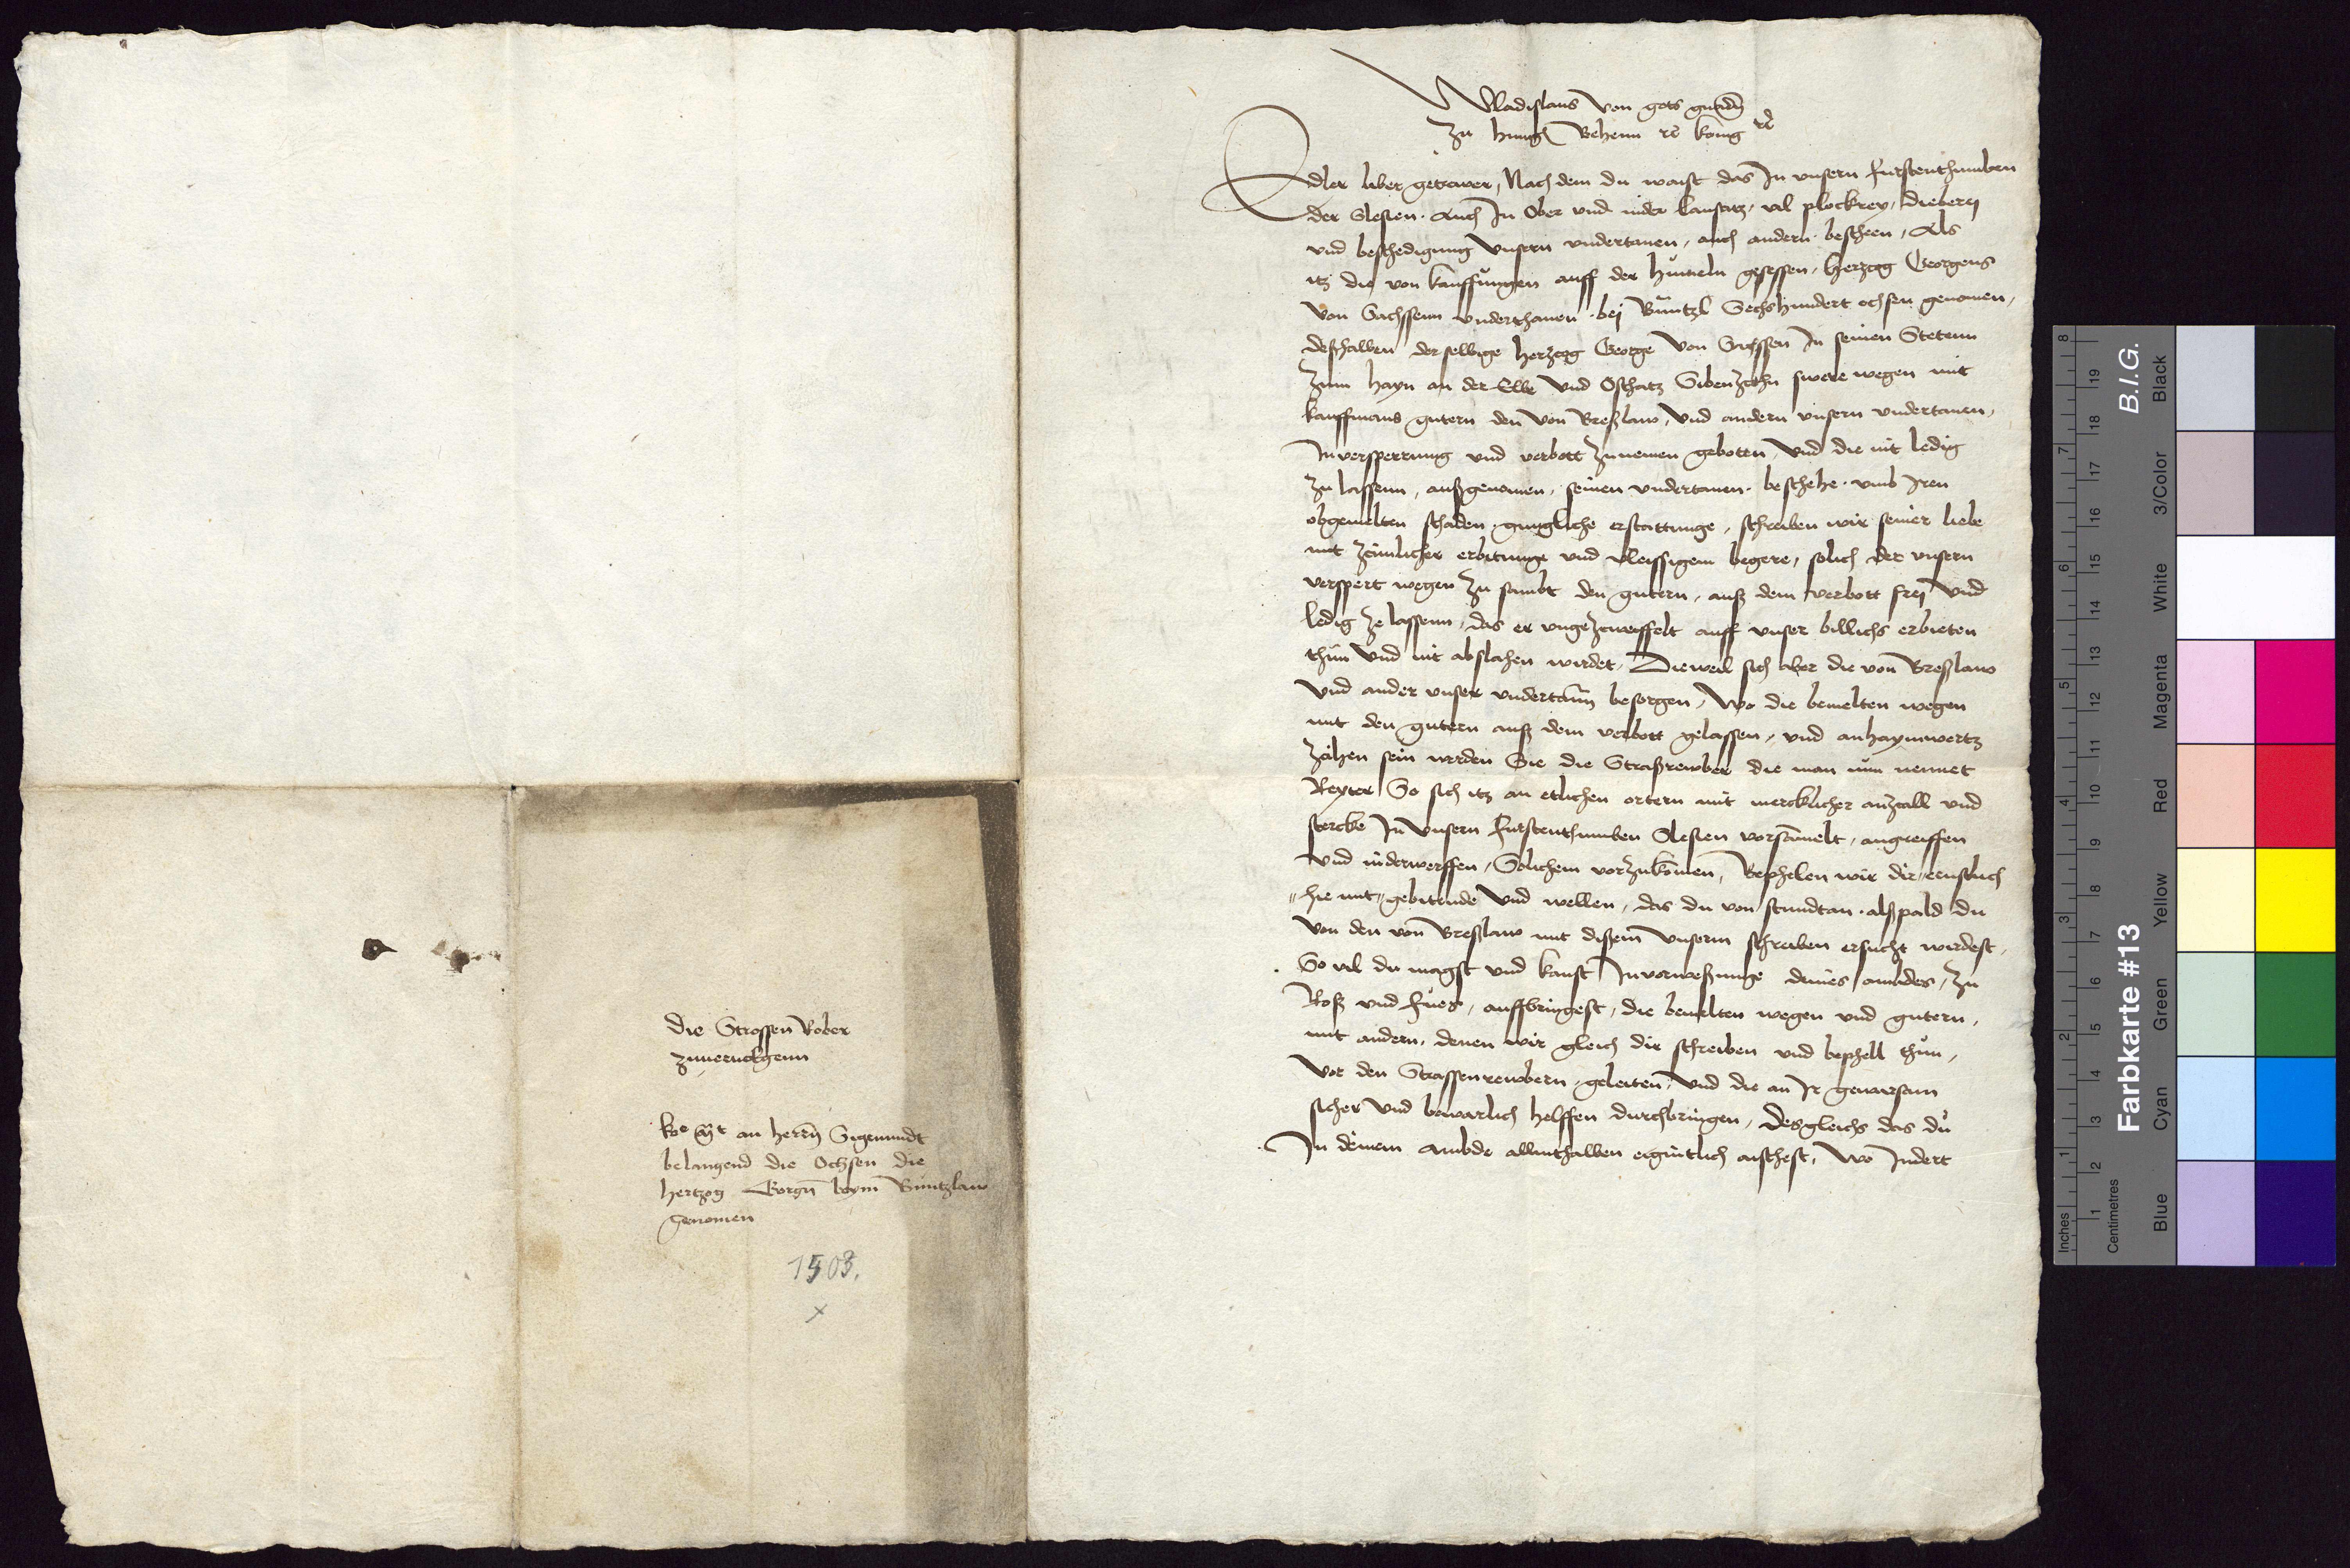 Wladislaus von gots gnadn
zu hung Behem rc konig rc
Edler liber getrewer, Nach dem du waist das In unsern furstenthumben
der Slesien. Auch In Ober und nider lausatz, vil plockrey, dieberj
und beschedigung unsern undertanen, auch andern bescheen, Als
itz die von kauffungen auff der hummeln gesessen, herzog Georgens
von Sachssenn underthanen bej Buntzl Sechshundert ochsen genomen,
deßhalben derselbige herzog George von Sachssen In seinen Stetenn
zum hayn an der Elbe und Oschatz Sibenzehn swere wegen mit
kauffmans gutern den von Breßlaw, und andern unsern undertanen,
In versperrung und verbott zunemen geboten, und die nit ledig
zu lassenn, außgenomen, seinen undertanen beschehe umb Iren
obgemelten schaden gnugliche erstattunge, schreiben wir seiner liebe
mit zimlicher erbitunge und vleissigem begere, solich der unsern
verspert wegen zu sambt den gutern, auß dem verbott frej und
ledig ze lassenn, das er ungezweiffelt auff unser billichs erbieten
thun und nit abslahen wirdet, Dieweil sich aber die von Breßlaw
und ander unser undertann besorgen, Wo die bemelten wegen
mit den gutern auß dem verbott gelassen, und anhaymwertz
zihen sein werden Sie die Straßrewber die man nun nennet
Reyter So sich itz an etlichen ortern mit mercklicher anzall und
stercke In unsern furstenthumben Slesien versamelt, angreiffen
und niderwerffen, Solichem vorzukomen, Bephelen wir dir ernstlich
hie mit gebitende und wellen, das du von stundtan alßpald du
von den von Breßlaw mit dißem unserm schreiben ersucht wirdest,
So vil du magst und kanst In verweßunge deines ambdes, zu
Roß und fues, auffbringest, die bemelten wegen und gutern,
mit andern, denen wir gleich dir schreiben und bephell thun,
vor den Strassenrewbern, geleiten, und die an Ir gewarsam
sicher und bewarlich helffen durchbringen, Desgleichs das du
In deinem ambde allenthalben eigintlich aufsehest, wo Indert
Die Strossen Rober
ko e Mt an herrn Sigemundt
belangend die Ochsen die
hertzog Gorgn beym Buntzlaw
genomen
1503.
x
Inches 1 2 3 4 5 6 7 8
Centimetres 1 2 3 4 5 6 7 8 9 10 11 12 13 14 15 16 17 18 19
Farbkarte #13
B.I.G.
Blue Cyan Green Yellow Red Magenta White 3/Color Black